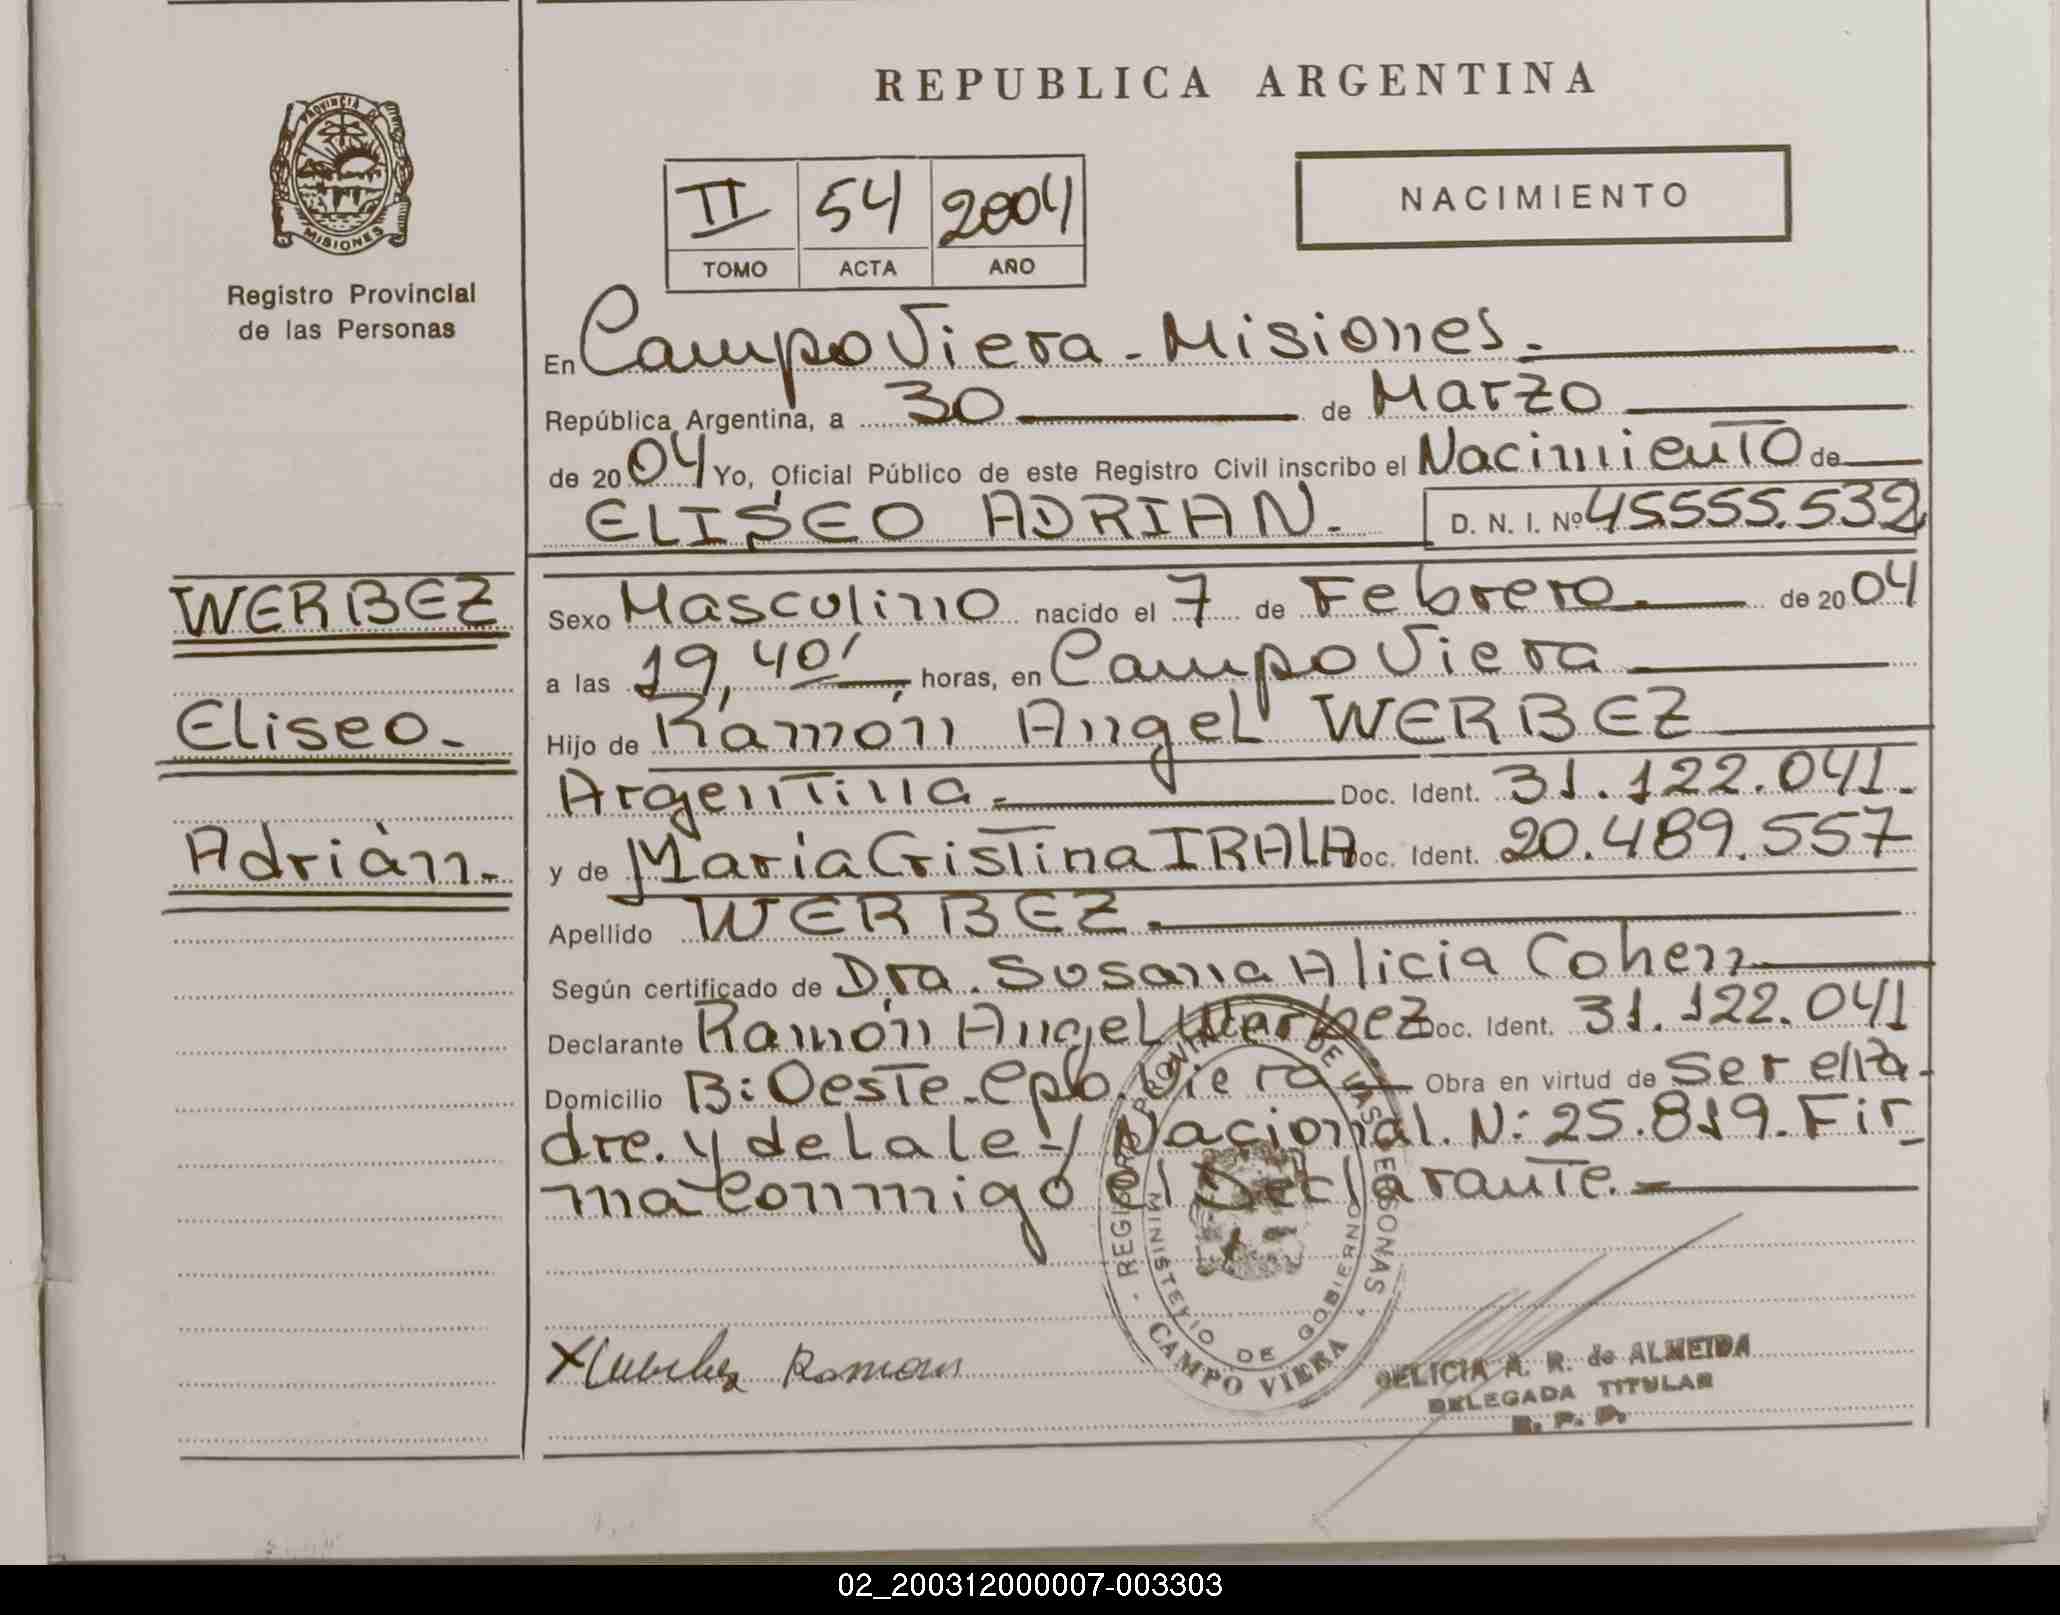 REPUBLICA ARGENTINA
PROVINCIA DE
MISIONES
Registro Provincial
de las Personas
II 54 2004
TOMO ACTA AÑO
NACIMIENTO
En Campo Viera - Misiones.
República Argentina, a 30 de Marzo
de 2004 Yo, Oficial Público de este Registro Civil inscribo el Nacimiento de
ELISEO ADRIAN. D. N. I. Nº 45.555.532
WERBEZ
Eliseo.
Adrián.
Sexo Masculino nacido el 7 de Febrero. de 2004
a las 19,40' horas, en Campo Viera
Hijo de Ramón Angel WERBEZ
Argentina. Doc. Ident. 31.122.041.
y de María Cristina IRALA Doc. Ident. 20.489.557
Apellido WERBEZ.
Según certificado de Dra. Susana Alicia Cohen
Declarante Ramón Angel Werbez Doc. Ident. 31.122.041
Domicilio B: Oeste. Cpo. Viera Obra en virtud de ser el Pa-
dre. y de la ley Nacional. N: 25.819. Fir_
ma conmigo el Declarante.
REGISTRO PROVINCIAL DE LAS PERSONAS
MINISTERIO DE GOBIERNO
CAMPO VIERA
X Werbez Ramon
DELICIA A. R. de ALMEIDA
DELEGADA TITULAR
R. P. P.
02_200312000007-003303